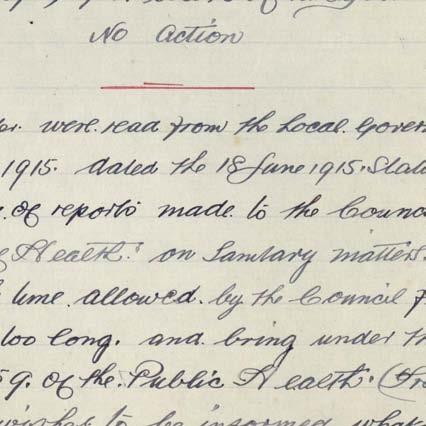 No Action
were read from the Local Govern
1915. dated the 18 June 1915. Stat
of reports made to the Counc
Health. on Sanitary matters.
time allowed. by the Council f
too long. and bring under th
59. of the Public Health. (Ire
wishes to be informed what